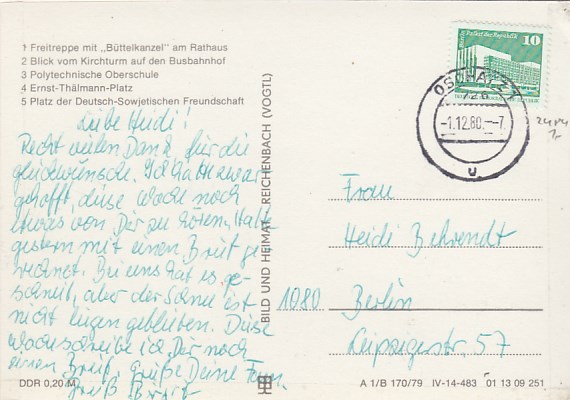 1 Freitreppe mit „Büttelkanzel" am Rathaus
2 Blick vom Kirchturm auf den Busbahnhof
3 Polytechnische Oberschule
4 Ernst-Thälmann-Platz
5 Platz der Deutsch-Sowjetischen Freundschaft
Liebe Heidi!
Recht vielen Dank für die
Glückwünsche. Ich hatte zwar
gehofft, diese Woche noch
etwas von Dir zu hören, hatte
gestern mit einen Brief ge-
rechnet. Bei uns hat es ge-
schneit, aber der Schnee ist
nicht liegen geblieben. Diese
Woche schreibe ich Dir noch
einen Brief. Grüße Deine
Gruß
DDR 0,20 M
BILD UND HEIMAT REICHENBACH (VOGTL)
Palast der Republik
10
OSCHATZ 1
726
-1.12.80.--7
u
Frau
Heidi Behrendt
1080 Berlin
Leipzigerstr. 57
A 1/B 170/79 IV-14-483 01 13 09 251